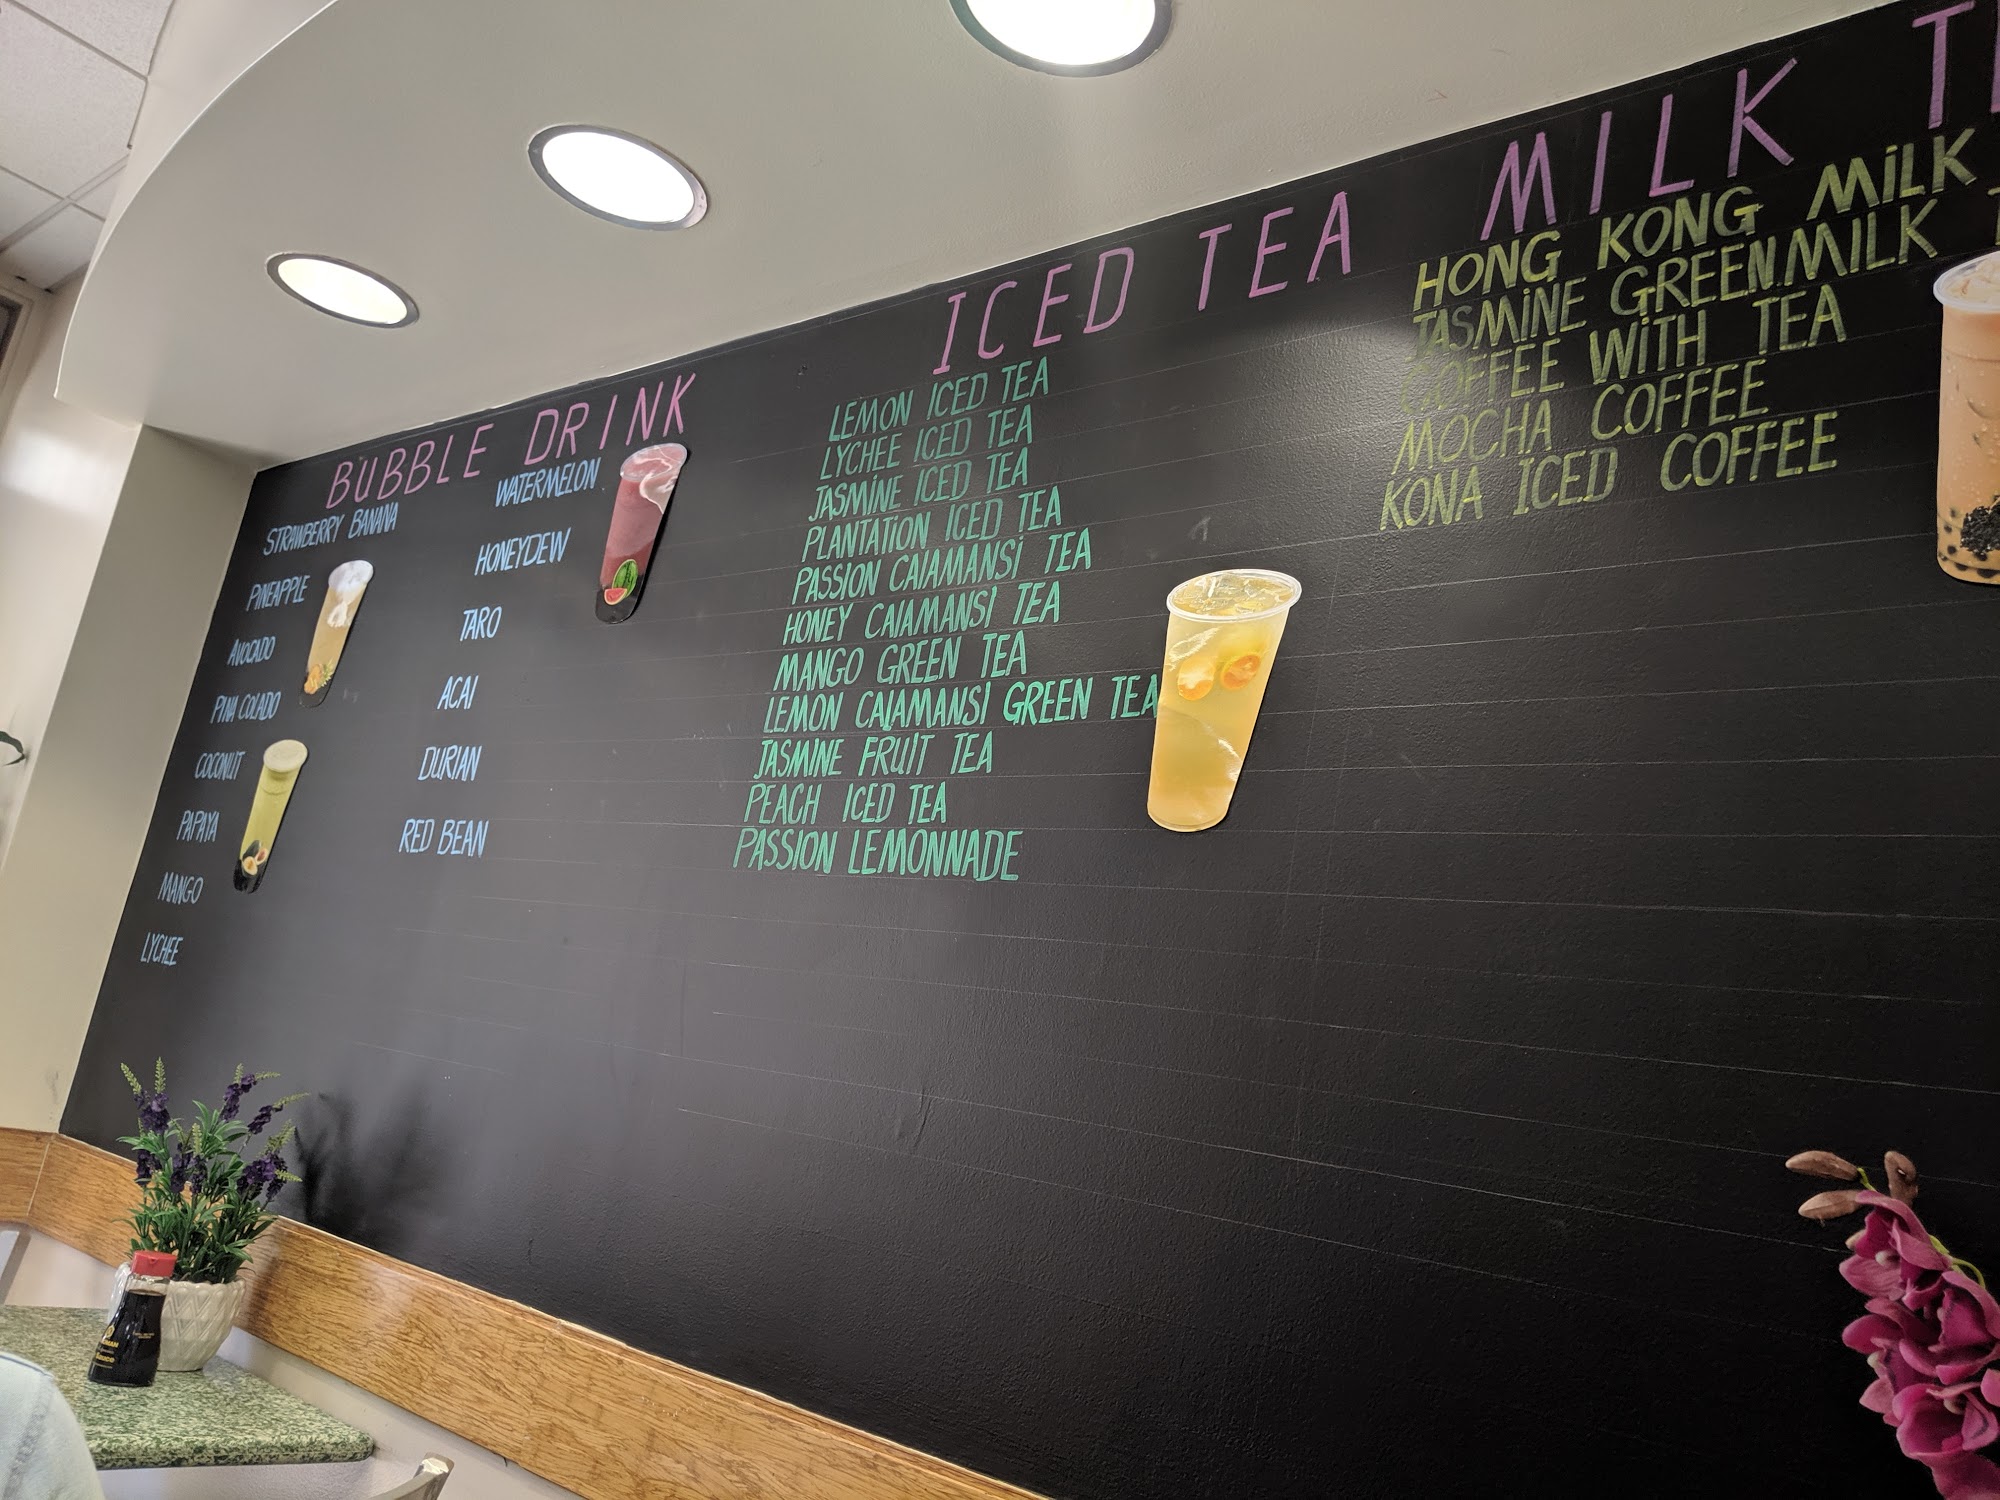 BUBBLE DRINK
STRAWBERRY BANANA
PINEAPPLE
AVOCADO
PINA COLADO
COCONUT
PAPAYA
MANGO
LYCHEE
WATERMELON
HONEYDEW
TARO
ACAI
DURIAN
RED BEAN
ICED TEA
LEMON ICED TEA
LYCHEE ICED TEA
JASMINE ICED TEA
PLANTATION ICED TEA
PASSION CAIAMANSI TEA
HONEY CAIAMANSI TEA
MANGO GREEN TEA
LEMON CAIAMANSI GREEN TEA
JASMINE FRUIT TEA
PEACH ICED TEA
PASSION LEMONNADE
MILK
HONG KONG MILK
JASMINE GREEN.MILK
COFFEE WITH TEA
MOCHA COFFEE
KONA ICED COFFEE